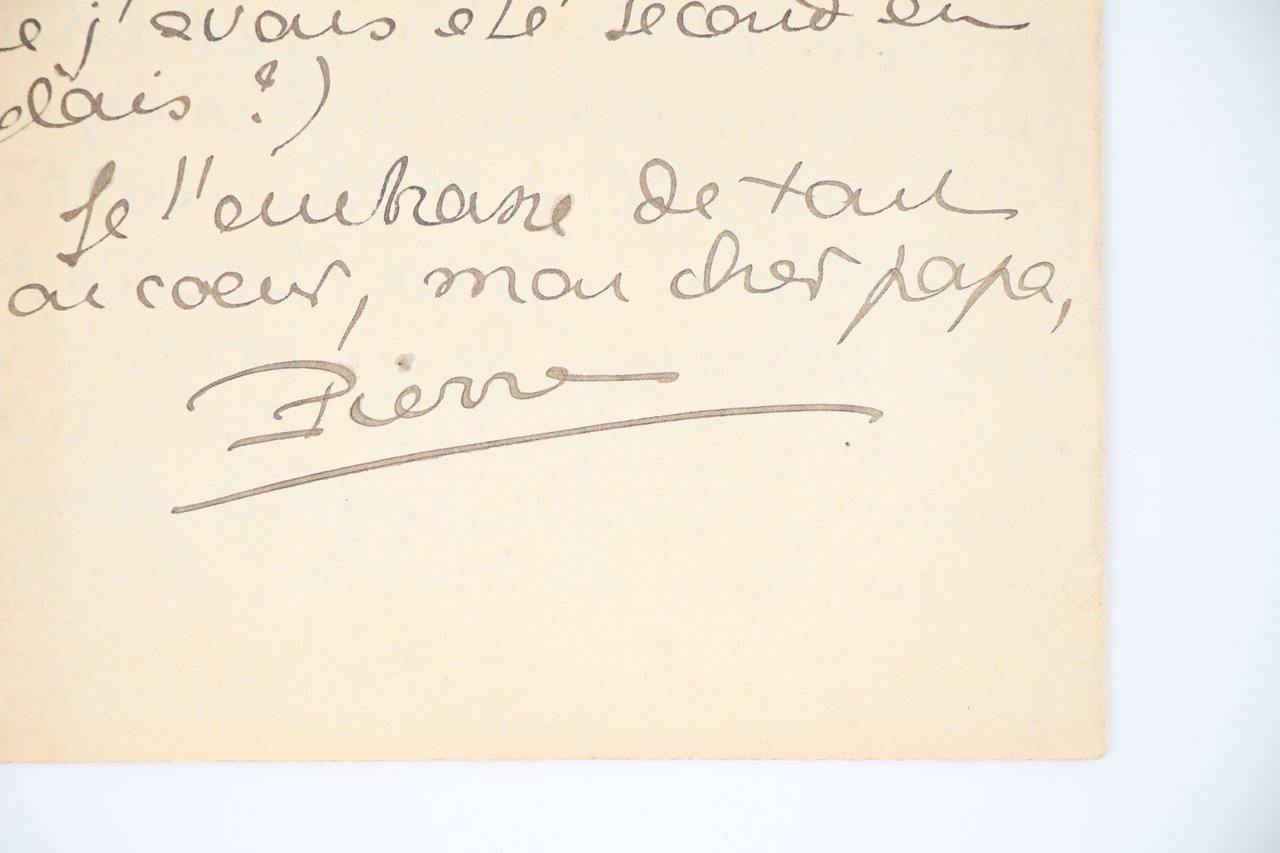 e j'avais été second en
glais ?)
Je t'embrasse de tout
on coeur, mon cher papa,
Pierre